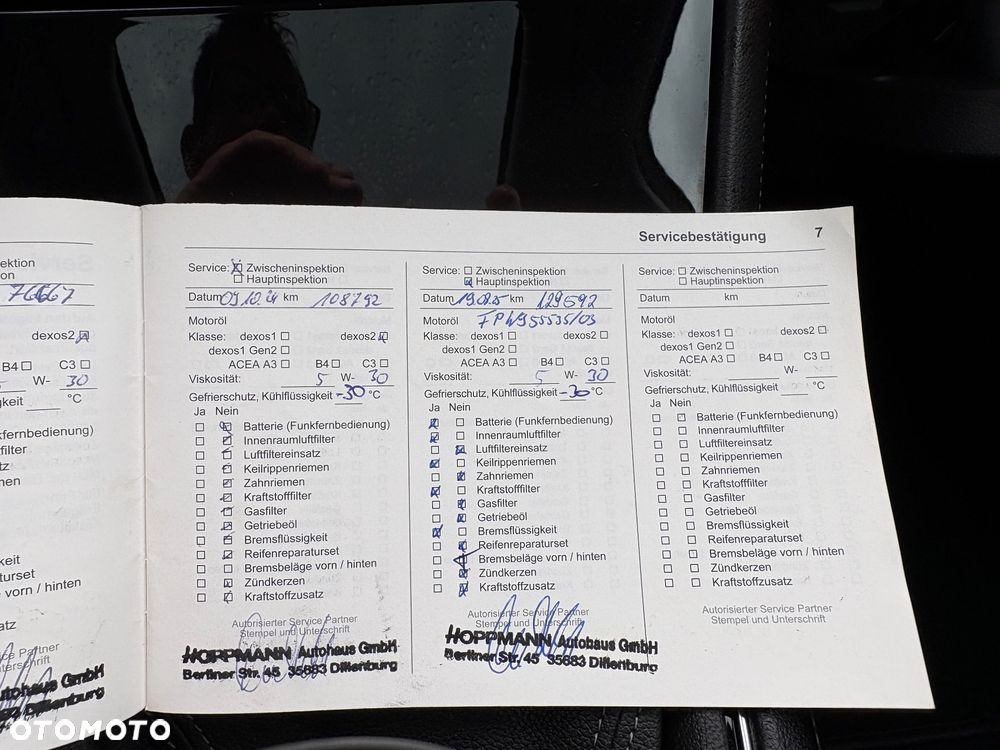 Servicebestätigung 7
ektion
on
76667
dexos2
B4 C3
W- 30
gkeit °C
kfernbedienung)
filter
tz
men
keit
aturset
vorn / hinten
satz
vice Partner
terschrift
utohaus GmbH
Dillenburg
Service: Zwischeninspektion
Hauptinspektion
Datum 09.10.24 km 108792
Motoröl
Klasse: dexos1 dexos2
dexos1 Gen2
ACEA A3 B4 C3
Viskosität: 5 W- 30
Gefrierschutz, Kühlflüssigkeit -30 °C
Ja Nein
Batterie (Funkfernbedienung)
Innenraumluftfilter
Luftfiltereinsatz
Keilrippenriemen
Zahnriemen
Kraftstofffilter
Gasfilter
Getriebeöl
Bremsflüssigkeit
Reifenreparaturset
Bremsbeläge vorn / hinten
Zündkerzen
Kraftstoffzusatz
Autorisierter Service Partner
Stempel und Unterschrift
HOPPMANN Autohaus GmbH
Berliner Str. 45 35683 Dillenburg
Service: Zwischeninspektion
Hauptinspektion
Datum 19.08.25 km 129592
Motoröl
Klasse: dexos1 dexos2
dexos1 Gen2
ACEA A3 B4 C3
Viskosität: 5 W- 30
Gefrierschutz, Kühlflüssigkeit -30 °C
Ja Nein
Batterie (Funkfernbedienung)
Innenraumluftfilter
Luftfiltereinsatz
Keilrippenriemen
Zahnriemen
Kraftstofffilter
Gasfilter
Getriebeöl
Bremsflüssigkeit
Reifenreparaturset
Bremsbeläge vorn / hinten
Zündkerzen
Kraftstoffzusatz
Autorisierter Service Partner
Stempel und Unterschrift
HOPPMANN Autohaus GmbH
Berliner Str. 45 35683 Dillenburg
Service: Zwischeninspektion
Hauptinspektion
Datum km
Motoröl
Klasse: dexos1 dexos2
dexos1 Gen2
ACEA A3 B4 C3
Viskosität: W-
Gefrierschutz, Kühlflüssigkeit °C
Ja Nein
Batterie (Funkfernbedienung)
Innenraumluftfilter
Luftfiltereinsatz
Keilrippenriemen
Zahnriemen
Kraftstofffilter
Gasfilter
Getriebeöl
Bremsflüssigkeit
Reifenreparaturset
Bremsbeläge vorn / hinten
Zündkerzen
Kraftstoffzusatz
Autorisierter Service Partner
Stempel und Unterschrift
OTOMOTO